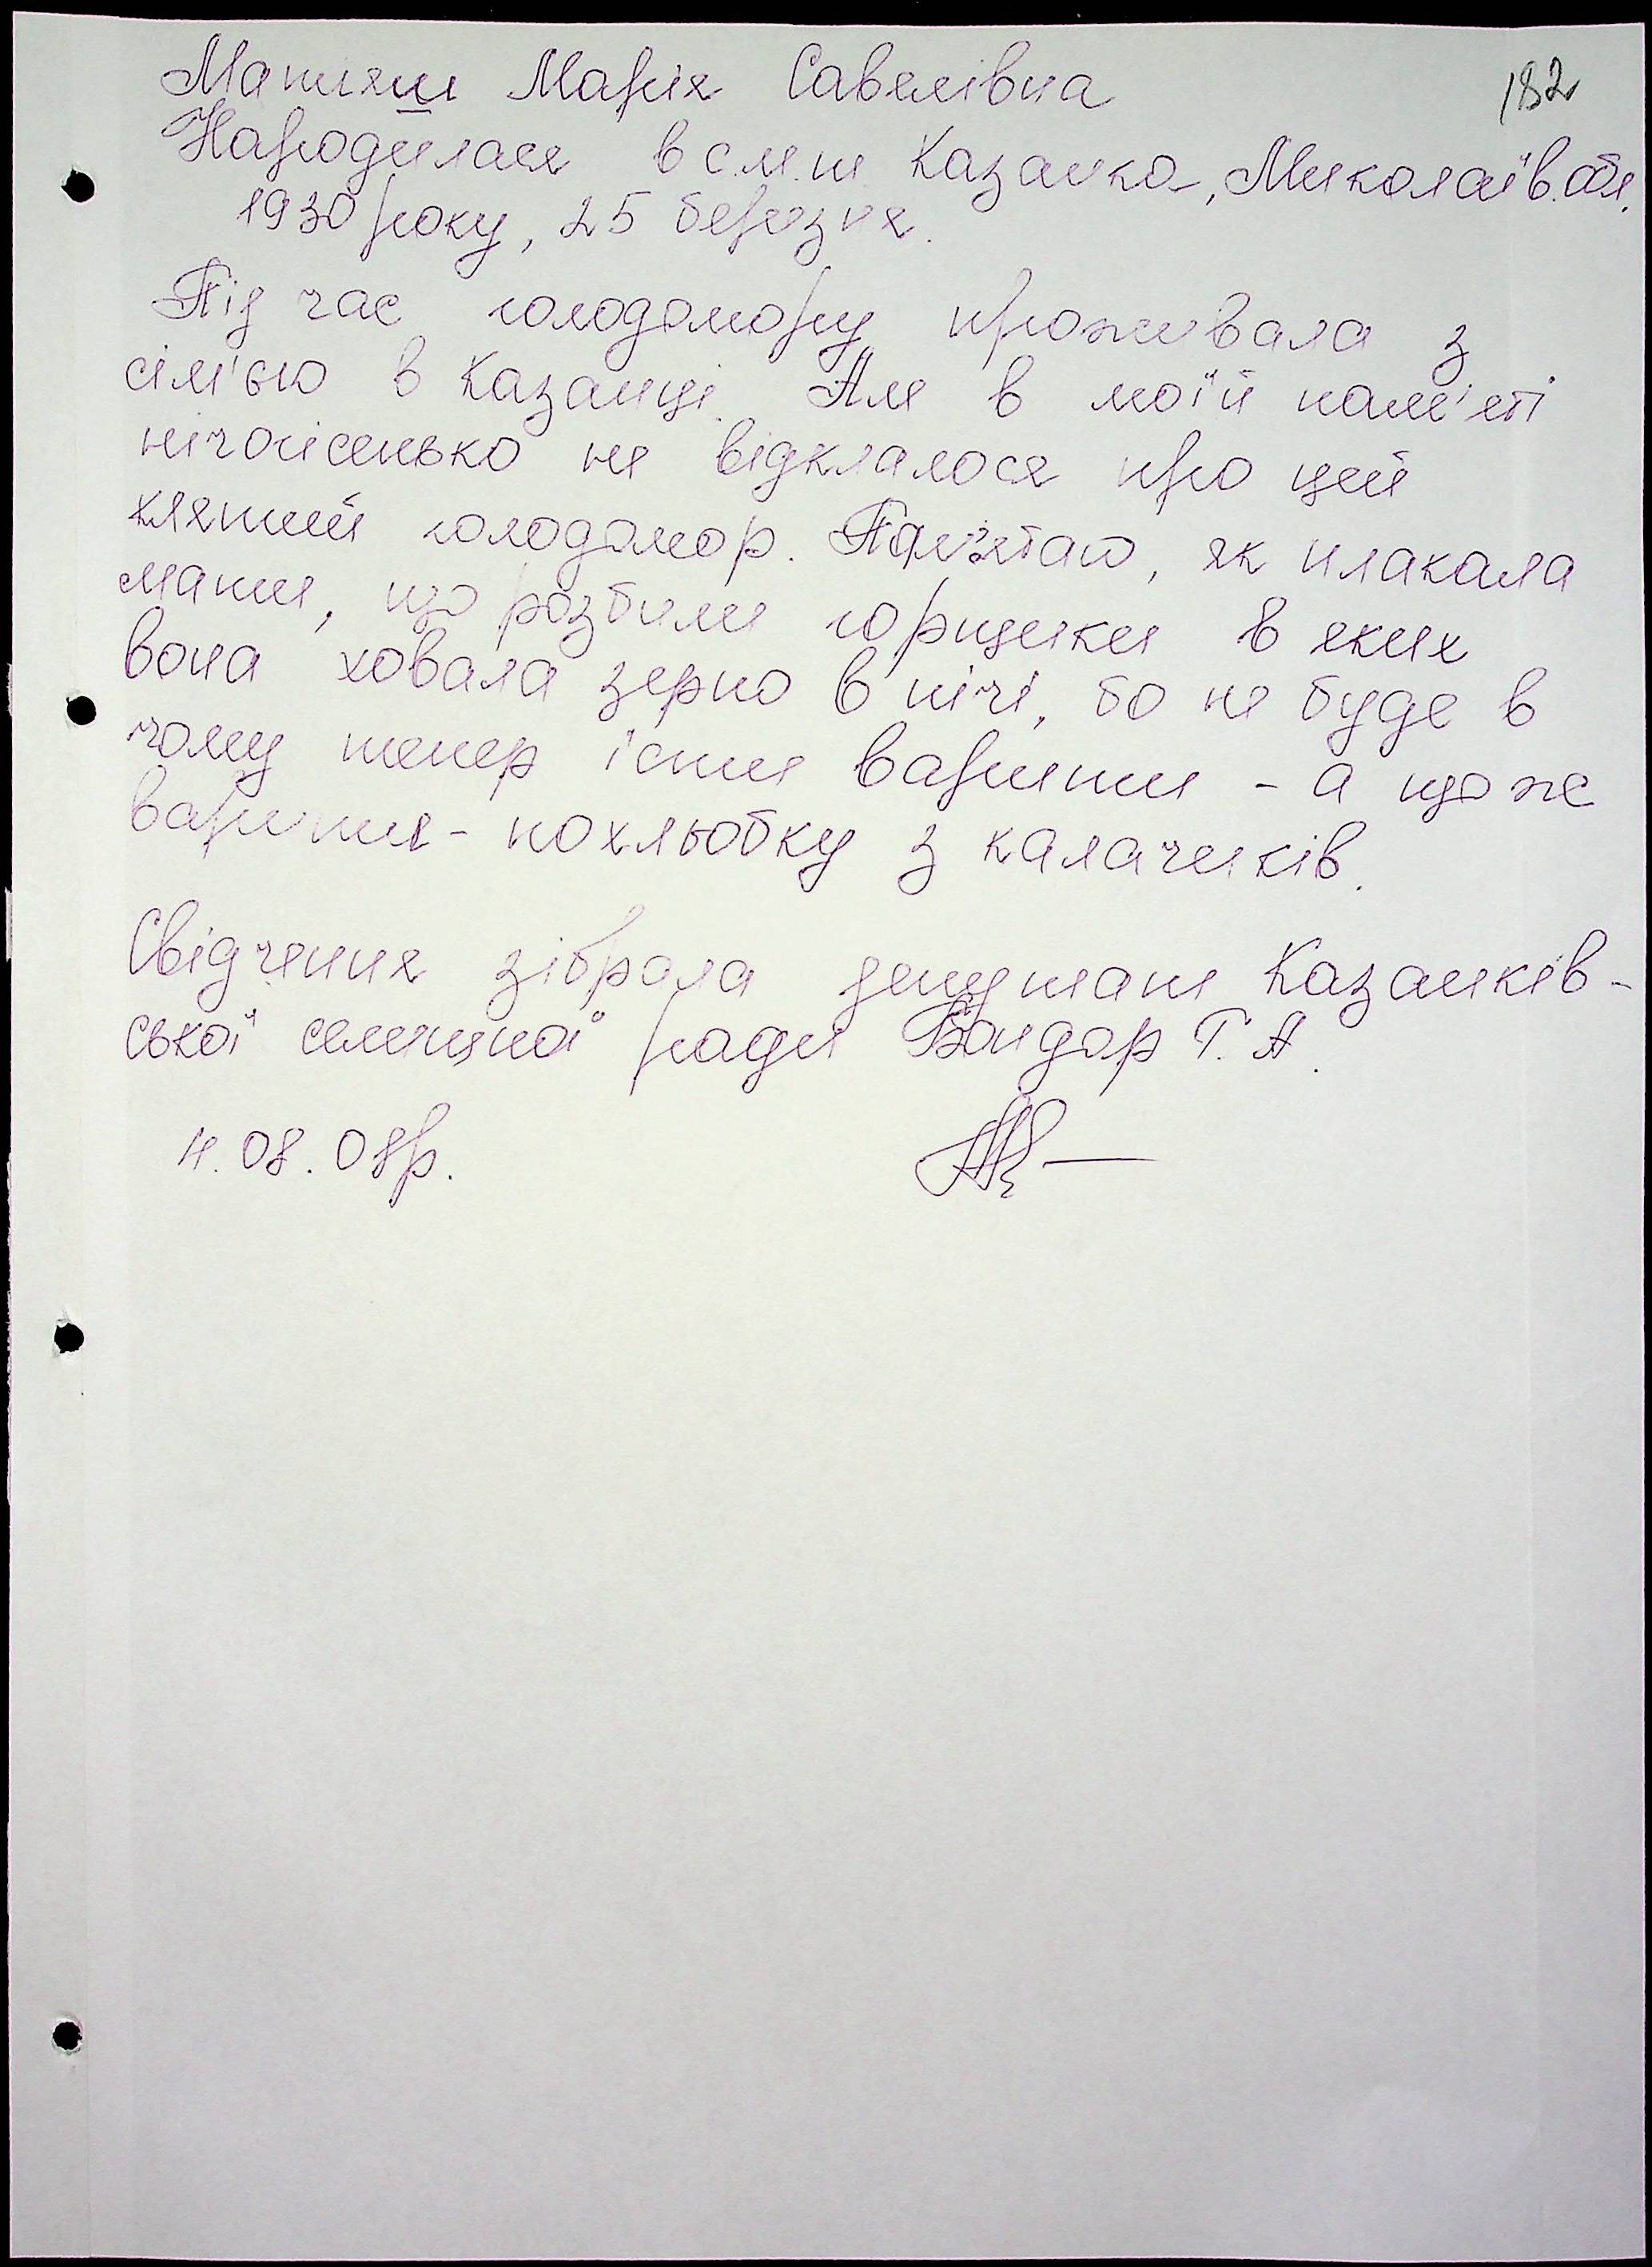 182
Матяш Марія Савелівна
Народилася в с.м.т Казанка, Миколаїв. обл.
1930 року, 25 березня.
Під час голодомору проживала з
сім'єю в Казанці. Але в моїй пам'яті
нічогісенько не відклалося про цей
клятий голодомор. Пам'ятаю, як плакала
мати, що розбили горщики в яких
вона ховала зерно в печі, бо не буде в
чому тепер їсти варити - а що ж
варити - похльобку з калачиків.
Свідчення зібрала депутат Казанків-
ської селищної ради Бондар Г. А.
4.08.08р.